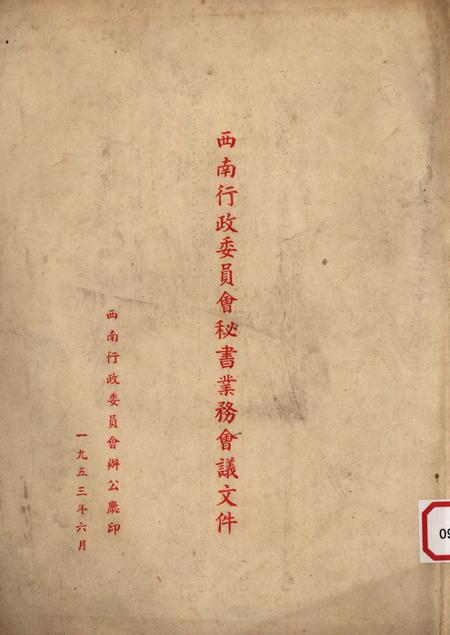 西南行政委員會秘書業務會議文件
西南行政委員會辦公廳印
一九五三年六月
09